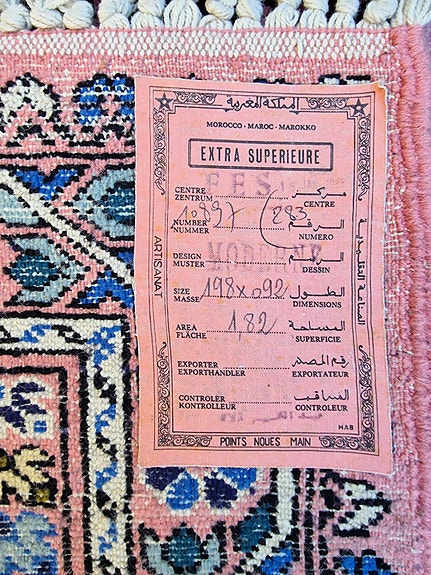 المملكة المغربية
MOROCCO - MAROC - MAROKKO
EXTRA SUPERIEURE
FES
CENTRE ZENTRUM مركز CENTRE
10797 (283
NUMBER NUMMER الرقم NUMERO
MODERNE
DESIGN MUSTER الرسم DESSIN
SIZE MASSE 198x092 الطول DIMENSIONS
AREA FLÄCHE 1,82 المساحة SUPERFICIE
EXPORTER EXPORTHANDLER رقم المصدر EXPORTATEUR
CONTROLER KONTROLLEUR المراقب CONTROLEUR
HAB
POINTS NOUES MAIN
ARTISANAT
الصناعة التقليدية